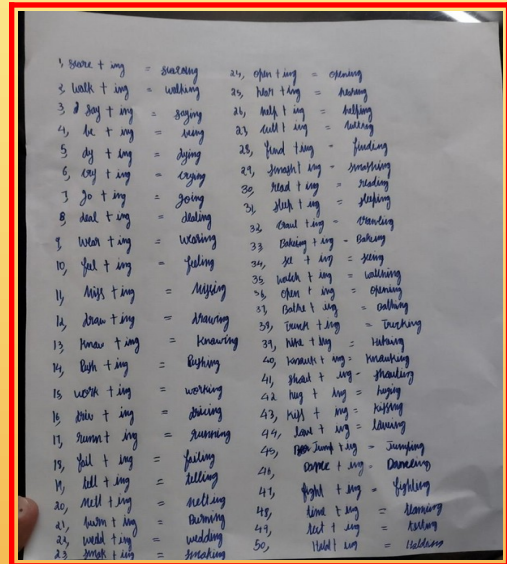 2, walk + ing = walking
3, say + ing = saying
4, be + ing = being
5, dy + ing = dying
6, cry + ing = crying
7, go + ing = going
8, deal + ing = dealing
9, wear + ing = wearing
10, feel + ing = feeling
11, Miss + ing = Missing
12, draw + ing = drawing
13, Know + ing = Knowing
14, Push + ing = Pushing
15, work + ing = working
16, driv + ing = driving
17, runn + ing = running
18, fail + ing = failing
19, tell + ing = telling
20, melt + ing = melting
21, burn + ing = Burning
22, wedd + ing = wedding
23, smok + ing = smoking
24, open + ing = opening
25, hear + ing = hearing
26, help + ing = helping
27, + ing =
28, find + ing = finding
29, smash + ing = smashing
30, read + ing = reading
31, sleep + ing = sleeping
32, + ing =
33, Bakeing + ing = Bakeing
34, see + ing = seing
35, walk + ing = walking
36, open + ing = opening
37, Bathe + ing = bathing
38, Truck + ing = Trucking
39, hike + ing =
40, + ing =
41, shout + ing = shouting
42, hug + ing = huging
43, kiss + ing = kissing
44, love + ing = loveing
45, Jump + ing = Jumping
46, + ing =
47, fight + ing = fighting
48, + ing =
49, + ing =
50, Hold + ing =